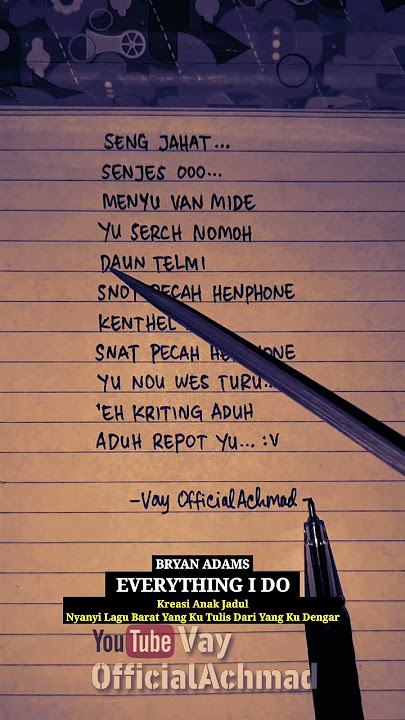 SENG JAHAT...
SENJES OOO...
MENYU VAN MIDE
YU SERCH NOMOH
DAUN TELMI
SNOT PECAH HENPHONE
KENTHEL
SNAT PECAH HENPHONE
YU NOU WES TURU...
'EH KRITING ADUH
ADUH REPOT YU... :V
-Vay OfficialAchmad-
BRYAN ADAMS
EVERYTHING I DO
Kreasi Anak Jadul
Nyanyi Lagu Barat Yang Ku Tulis Dari Yang Ku Dengar
YouTube Vay
OfficialAchmad